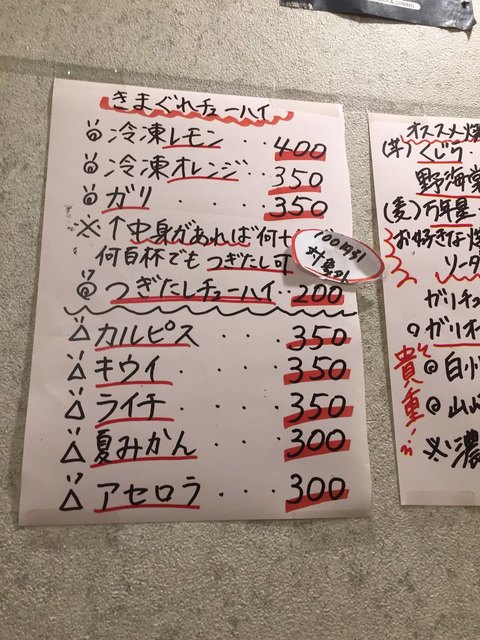 きまぐれチューハイ
冷凍レモン・・400
冷凍オレンジ・・350
ガリ・・・350
※↑中身があれば何十
何百杯でもつぎたし可
100円引
対象外
つぎたしチューハイ・・200
カルピス・・・350
キウイ・・・350
ライチ・・・350
夏みかん・・・300
アセロラ・・・300
オススメ焼
(芋)くじら
野海棠
(麦)万年星
お好きな焼
ソーダ
ガリチュ
ガリオ
貴重!
白州
山崎
※濃